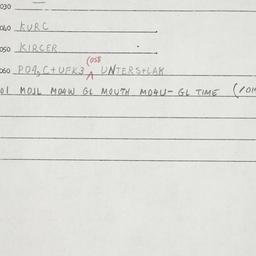 030
040 KURC
050 KIRCER
(OSS
060 PO4, C+UFK3 UNTERSTLAK
01 MOJL MOAW GL MOUTH MO4U- GL TIME